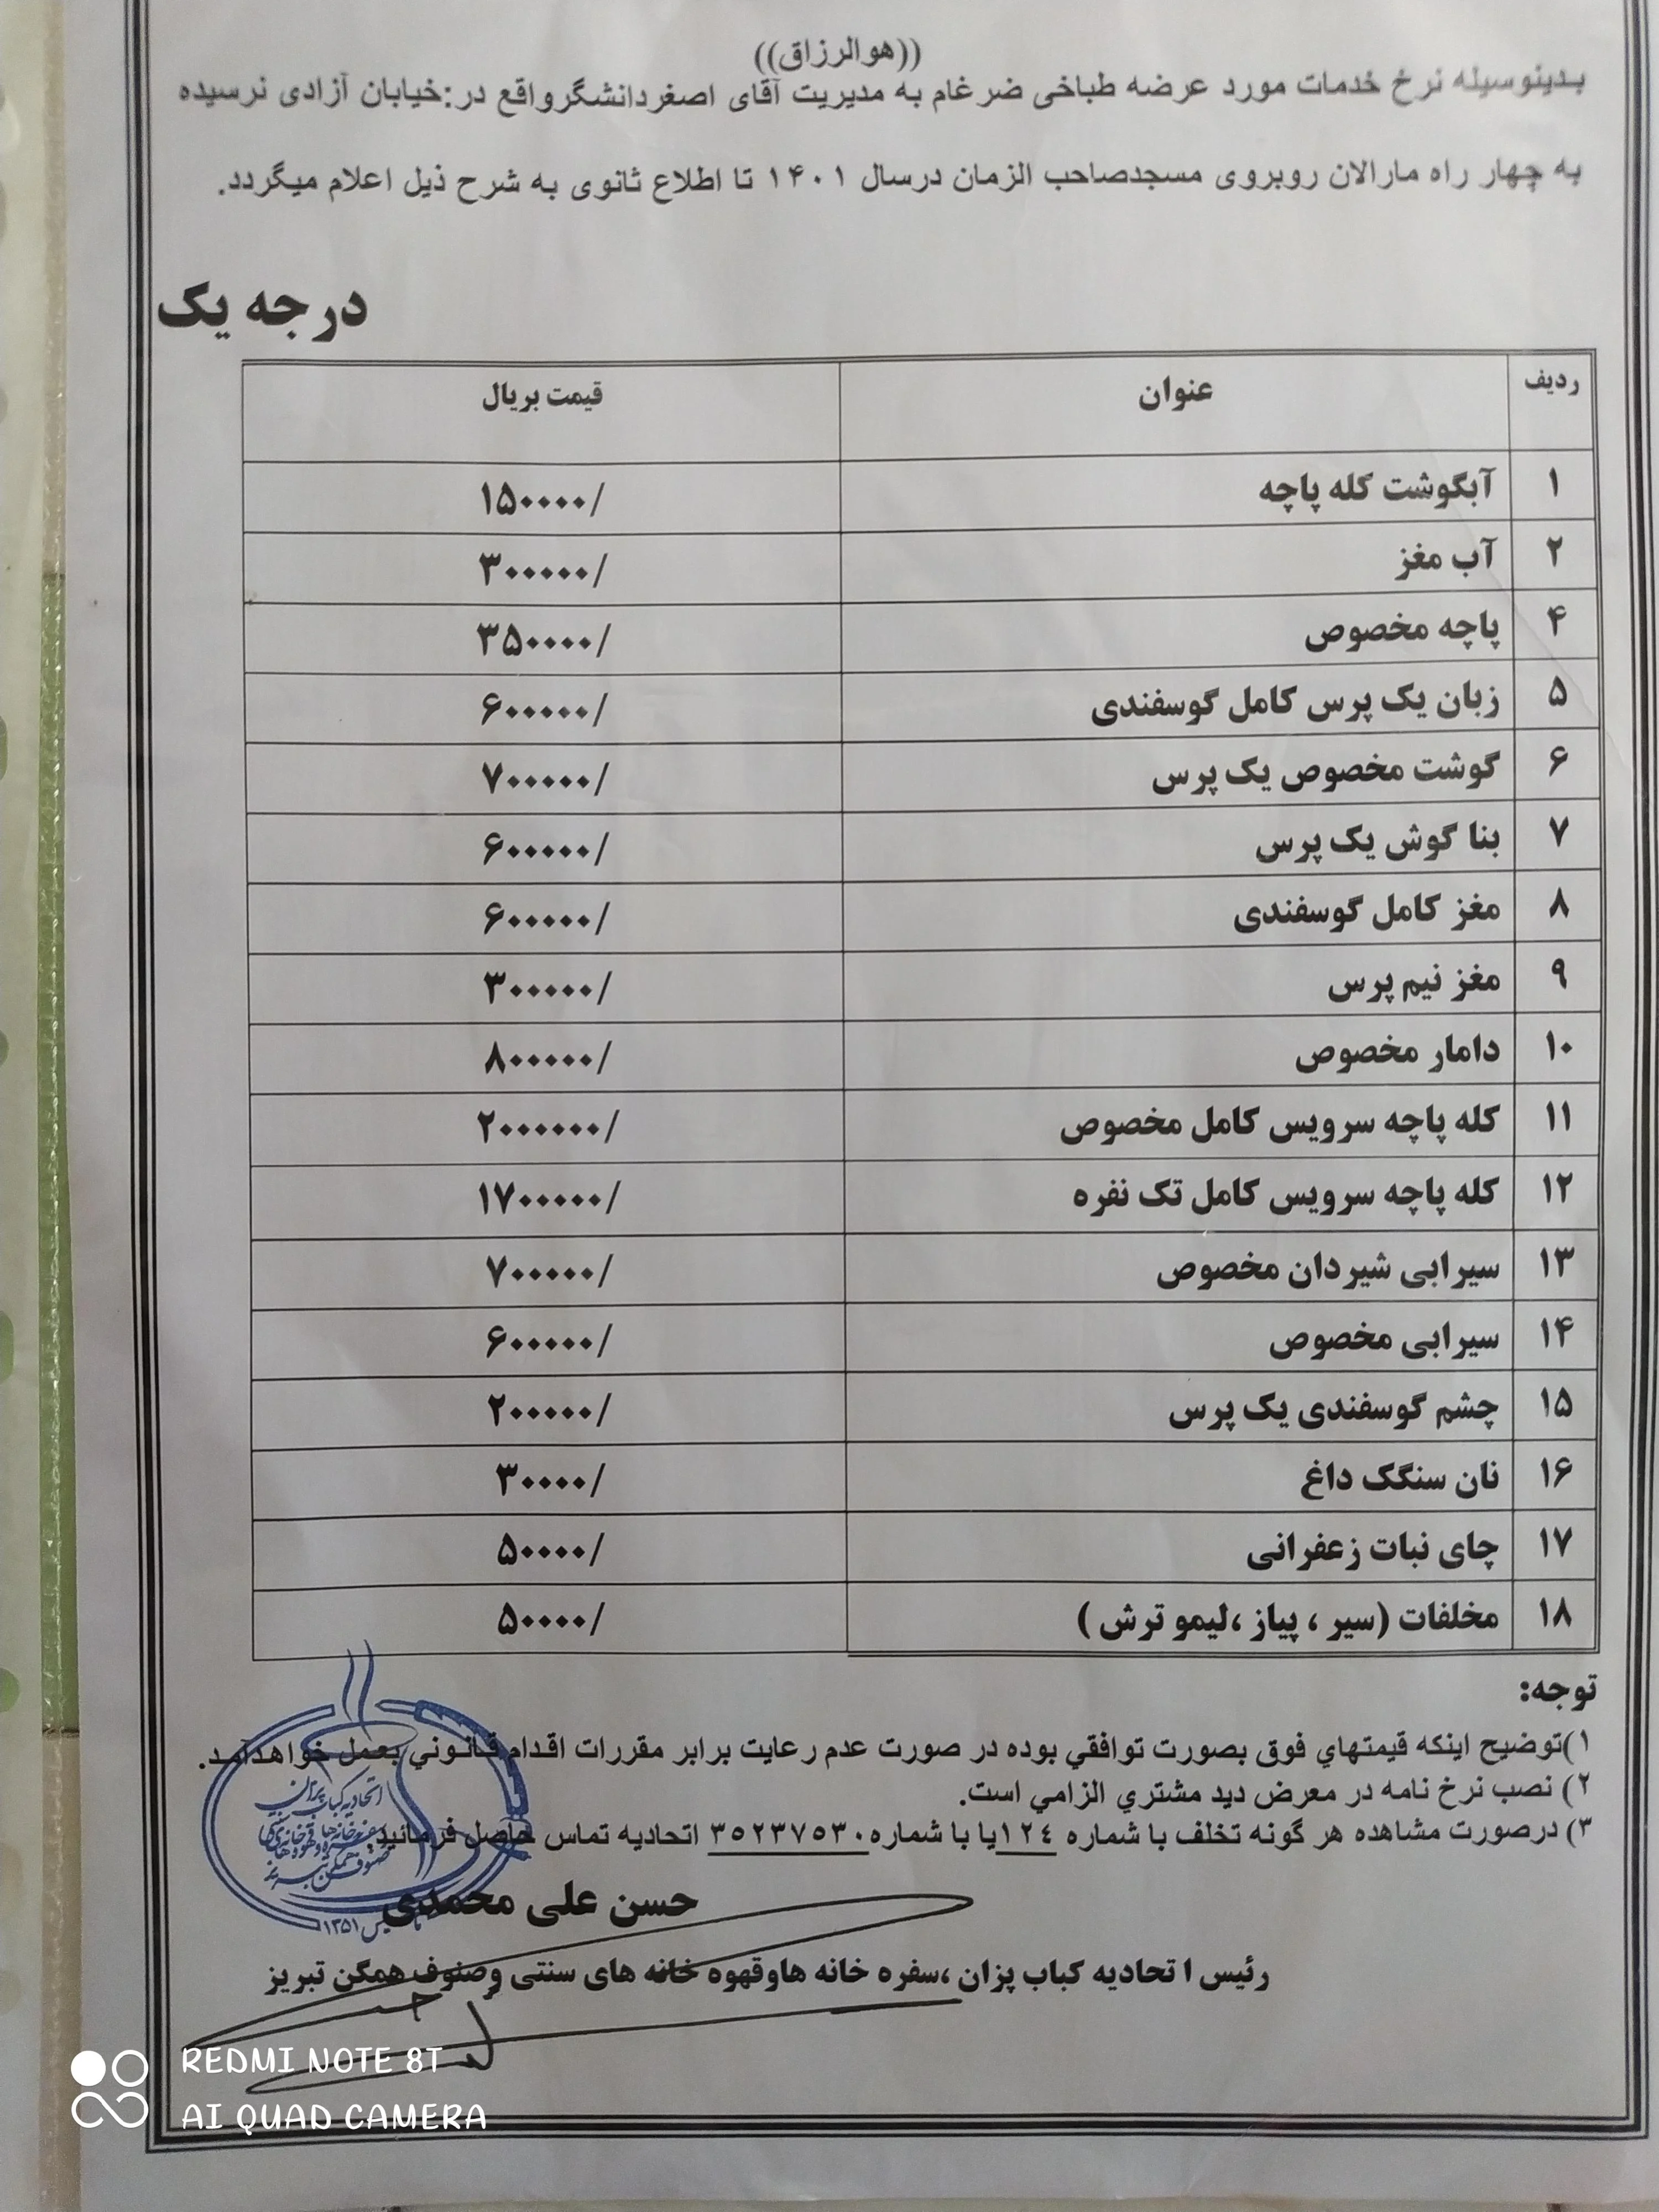 ((هوالرزاق))
بدینوسیله نرخ خدمات مورد عرضه طباخی ضرغام به مدیریت آقای اصغردانشگرواقع در:خیابان آزادی نرسیده
به چهار راه مارالان روبروی مسجدصاحب الزمان درسال ۱۴۰۱ تا اطلاع ثانوی به شرح ذیل اعلام میگردد.
درجه یک
ردیف عنوان قیمت بریال
۱ آبگوشت کله پاچه ۱۵۰۰۰۰/
۲ آب مغز ۳۰۰۰۰۰/
۴ پاچه مخصوص ۳۵۰۰۰۰/
۵ زبان یک پرس کامل گوسفندی ۶۰۰۰۰۰/
۶ گوشت مخصوص یک پرس ۷۰۰۰۰۰/
۷ بنا گوش یک پرس ۶۰۰۰۰۰/
۸ مغز کامل گوسفندی ۶۰۰۰۰۰/
۹ مغز نیم پرس ۳۰۰۰۰۰/
۱۰ دامار مخصوص ۸۰۰۰۰۰/
۱۱ کله پاچه سرویس کامل مخصوص ۲۰۰۰۰۰۰/
۱۲ کله پاچه سرویس کامل تک نفره ۱۷۰۰۰۰۰/
۱۳ سیرابی شیردان مخصوص ۷۰۰۰۰۰/
۱۴ سیرابی مخصوص ۶۰۰۰۰۰/
۱۵ چشم گوسفندی یک پرس ۲۰۰۰۰۰/
۱۶ نان سنگک داغ ۳۰۰۰۰/
۱۷ چای نبات زعفرانی ۵۰۰۰۰/
۱۸ مخلفات (سیر ، پیاز ،لیمو ترش ) ۵۰۰۰۰/
توجه:
۱)توضیح اینکه قیمتهاي فوق بصورت توافقي بوده در صورت عدم رعایت برابر مقررات اقدام قانوني بعمل خواهدآمد.
۲) نصب نرخ نامه در معرض دید مشتري الزامي است.
۳) درصورت مشاهده هر گونه تخلف با شماره ١٢٤یا با شماره ٣٥٢٣٧٥٣٠ اتحادیه تماس حاصل فرمائید
اتحادیه کباب پزان
۱۳۵۱
حسن علی محمدی
رئیس ا تحادیه کباب پزان ،سفره خانه هاوقهوه خانه های سنتی وصنوف همگن تبریز
REDMI NOTE 8T
AI QUAD CAMERA